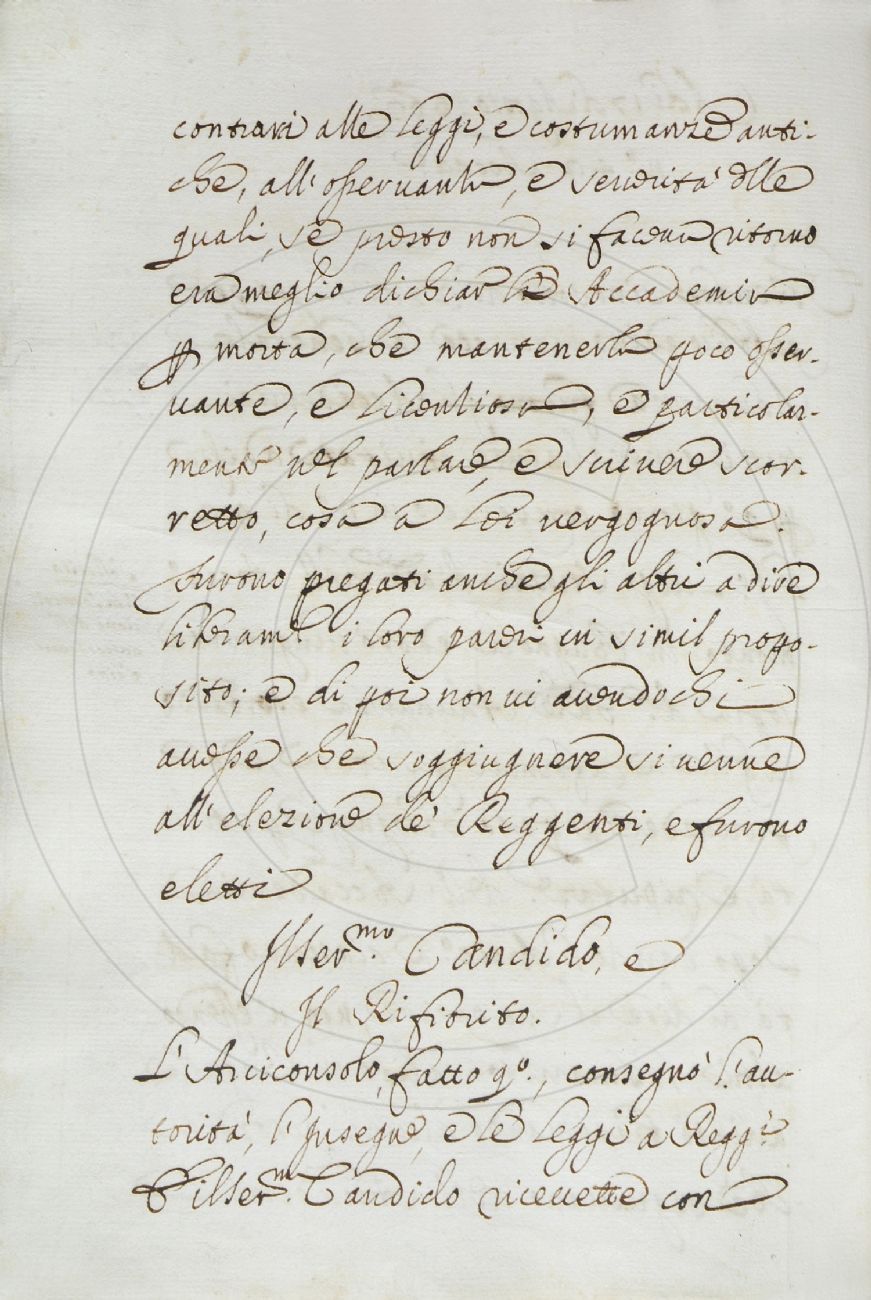 contrari alle leggi, e costumanze anti-
che, all'osservanza, e severità delle
quali, se presto non si faceva ritorno
era meglio dichiar la Accademia
p morta, che mantenerla poco osser-
vante, e licenziosa, e particolar-
mente nel parlare, e scrivere scor-
retto, cosa a Lei vergognosa.
furono pregati anche gli altri a dire
liberam.e i loro pareri in simil propo-
sito; e di poi non vi avendo chi
avesse che soggiugnere si venne
all'elezione de' Reggenti, e furono
eletti
Il Ser.mo Candido, e
Il Rifiorito.
L'Arciconsolo, fatto q.o, consegnò l'au-
torità, l'Insegne, e le leggi a Regg.i
E il Ser.m Candido ricevette con